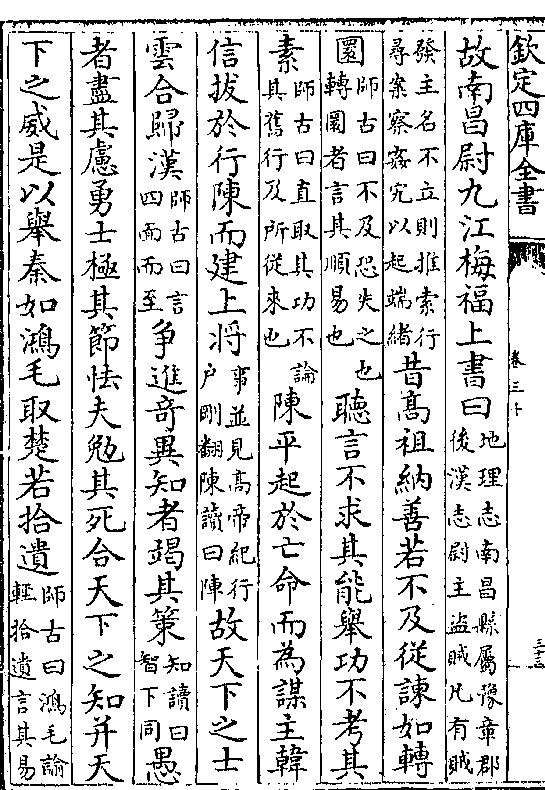 欽定四庫全書
卷三十
三十三
故南昌尉九江梅福上書曰地理志南昌縣屬豫章郡後漢志尉主盜賊凡有賊
發主名不立則推索行尋案察姦宄以起端緒昔髙祖納善若不及從諫如轉
圜師古曰不及恐失之也轉圜者言其順易也聽言不求其能舉功不考其
素師古曰直取其功不論其舊行及所從來也陳平起於亡命而為謀主韓
信拔於行陳而建上将事並見髙帝紀行户剛翻陳讀曰陣故天下之士
雲合歸漢師古曰言四面而至爭進奇異知者竭其策知讀曰智下同愚
者盡其慮勇士極其節怯夫勉其死合天下之知并天
下之威是以舉秦如鴻毛取楚若拾遺師古曰鴻毛諭輕拾遺言其易